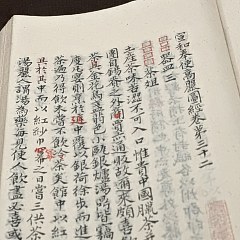 宣和奉使高麗圖經卷第三十二
器皿三
茶俎
土產茶味苦澀不可入口惟貴中國臘茶
團自錫賚之外商賈亦通販故邇來頗喜
茶具金花烏盞翡色小甌銀爐湯鼎皆竊
度凡宴則烹於廷中覆以銀荷徐步而進
茶遍乃得飲未嘗不飲冷茶矣館中以紅
具於其中而以紅紗巾冪之日嘗三供茶
湯麗人謂湯為藥每見使人飲盡必喜或